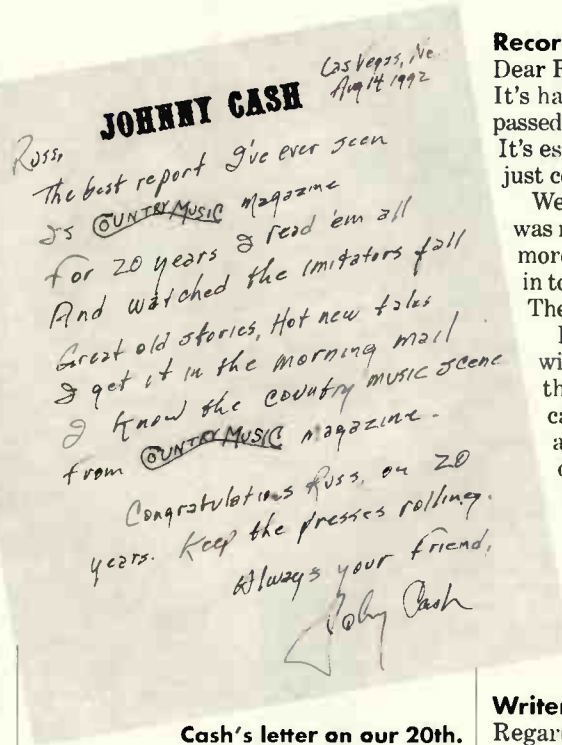 JOHNNY CASH
Las Vegas, Nv.
Aug 14 1992
Russ,
The best report I've ever seen
Is COUNTRY MUSIC magazine
For 20 years I read 'em all
And watched the imitators fall
Great old stories, Hot new tales
I get it in the morning mail
I know the country music scene
from COUNTRY MUSIC magazine.
Congratulations Russ, on 20
years. Keep the presses rolling.
Always your friend,
Johny Cash
Cash's letter on our 20th.
Recor
Dear R
It's ha
passed
It's es
just co
We
was r
more
in to
The
wi
th
ca
a
Writer
Regar